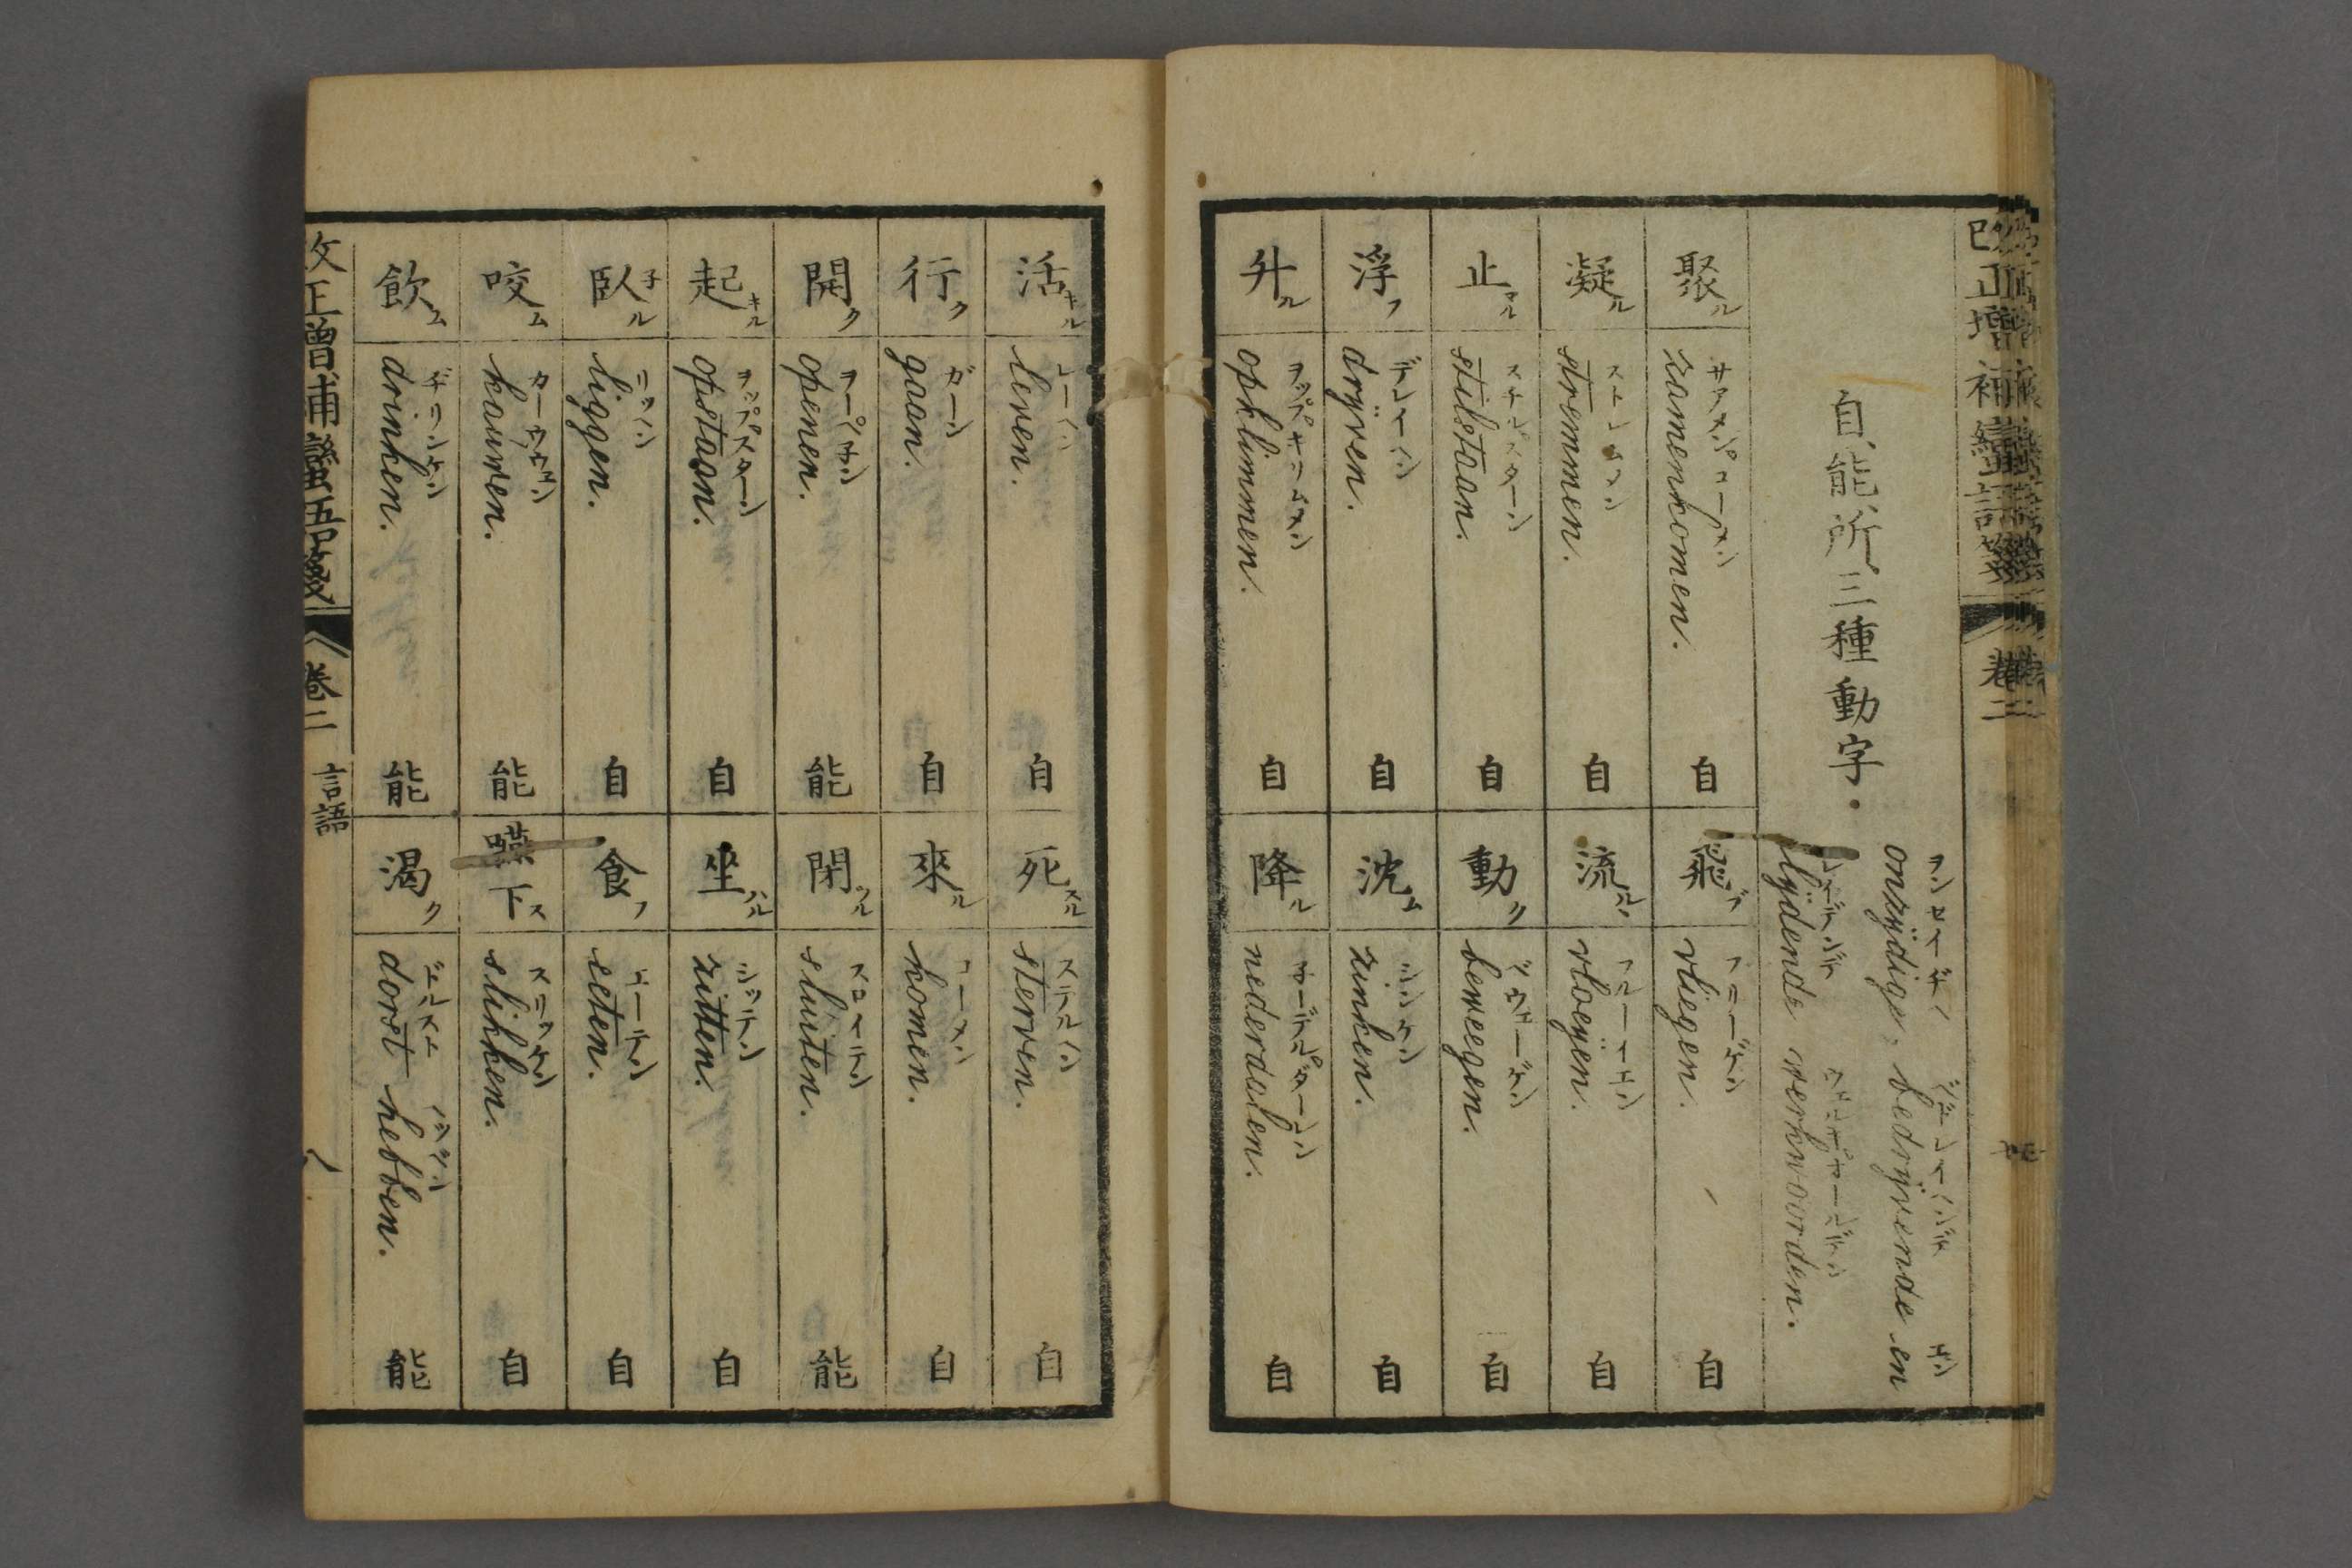 改正増補蠻語箋 卷二
自、能、所、三種動字・
ヲンセイヂヘ ベデレイヘンデ エン
onzydige, bedryvende en
レイデンデ ウェルキウヲールデン
lydende werkwoorden.
聚ル サアメンコーメン zamenkomen. 自
飛ブ フリーゲン vliegen. 自
凝ル ストレムメン stremmen. 自
流ル フルーイエン vloeyen. 自
止マル スチルスターン stilstaan. 自
動ク ベウェーゲン bewegen. 自
浮フ デレイヘン dryven. 自
沈ム シンケン zinken. 自
升ル ヲップキリムメン opklimmen. 自
降ル ネーデルダーレン nederdalen. 自
活キル レーヘン leven. 自
死スル ステルヘン sterven. 自
行ク ガーン gaan. 自
來ル コーメン komen. 自
開ク ヲーペ子ン openen. 能
閉ツル スロイテン sluiten. 能
起キル ヲップスターン opstaan. 自
坐ハル シッテン zitten. 自
臥子ル リッヘン liggen. 自
食フ エーテン eeten. 自
咬ム カーウウェン kauwen. 能
嚥下ス スリッケン slikken. 自
飲ム ヂリンケン drinken. 能
渇ク ドルスト ヘッベン dorst hebben. 能
改正增補蠻語箋 卷二 言語 八